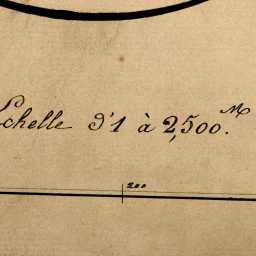 Échelle d'1 à 2,500.M
200